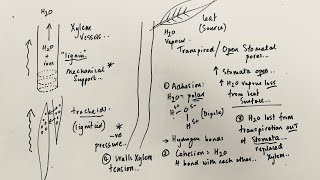 H₂O
Xylem
Vessels..
H₂O
+
ions
"lignin"
mechanical
Support..
tracheids
(lignified)
*
-ve
pressure..
⑥ Walls Xylem
tension..
H₂O
Vapour
leaf
(Source)
Transpired/Open Stomatal
pores..
↑ Stomata open..
↑ H₂O vapour loss
from leaf
Surface..
① Adhesion:
H₂O = polar
(Dipole)
→ Hydrogen bonds
② Cohesion = H₂O
H bond with each other..
⑧ H₂O lost from
transpiration OUT
of Stomata
replaced
Xylem..